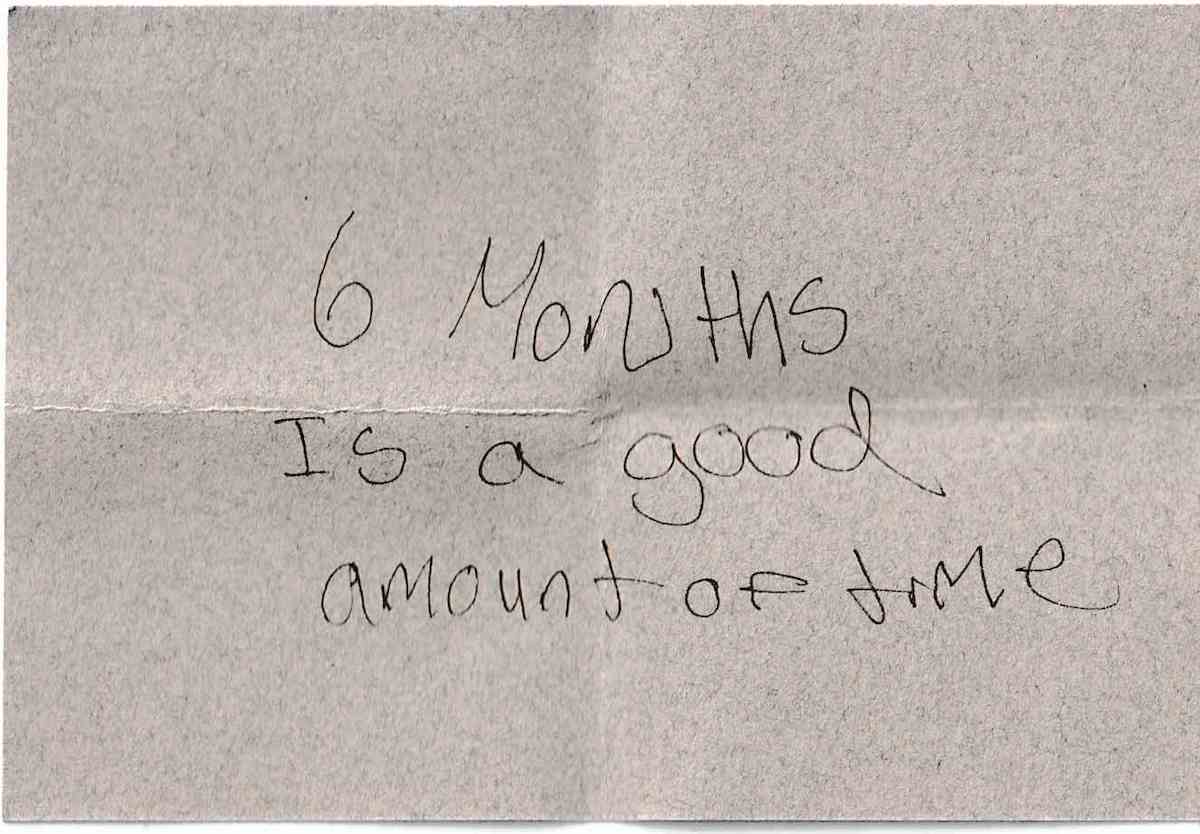 6 Months
Is a good
amount of time